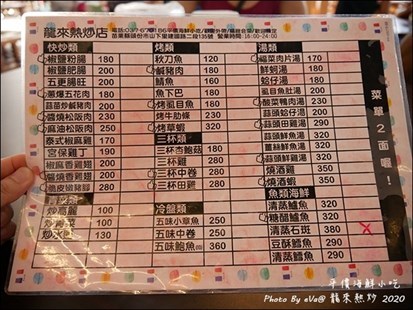 龍來熱炒店
營業時間:16:00-24:00
快炒類
椒鹽粉腸 180
椒鹽肥腸 200
五更腸旺 200
蔥爆五花肉 180
蒜苗炒鹹豬肉 180
醬燒松阪肉 240
麻油松阪肉 250
泰式椒麻雞 170
宮保雞丁 190
椒麻香雞翅 200
醬燒香雞翅 200
脆皮嫩豬腳 280
炒高麗 100
炒青菜 100
炒水蓮 130
烤類
秋刀魚 120
鹹豬肉 180
鯖魚 150
魚下巴 180
烤虱目魚 200
烤牛肋條 250
烤草蝦 320
三杯類
三杯杏鮑菇 180
三杯田雞 280
三杯中卷 280
三杯雞 280
冷盤類
五味小章魚 250
五味中卷 250
五味鮑魚 360
湯類
福菜肉片湯 170
鮮蚵湯 180
蛤仔湯 180
虱目魚肚湯 200
酸菜鴨肉湯 200
蒜頭蛤仔湯 200
蒜頭田雞湯 250
蒜頭鮮魚湯 250
薑絲鮮魚湯 250
蒜頭鮮雞湯 250
燒酒雞 350
燒酒蝦 350
魚類海鮮
清蒸鱸魚 320
糖醋鱸魚 320
清蒸石斑 380
豆酥鱈魚 290
清蒸鱈魚 290
菜單2面喔!
平價海鮮小吃
Photo By eVa@ 龍來熱炒 2020